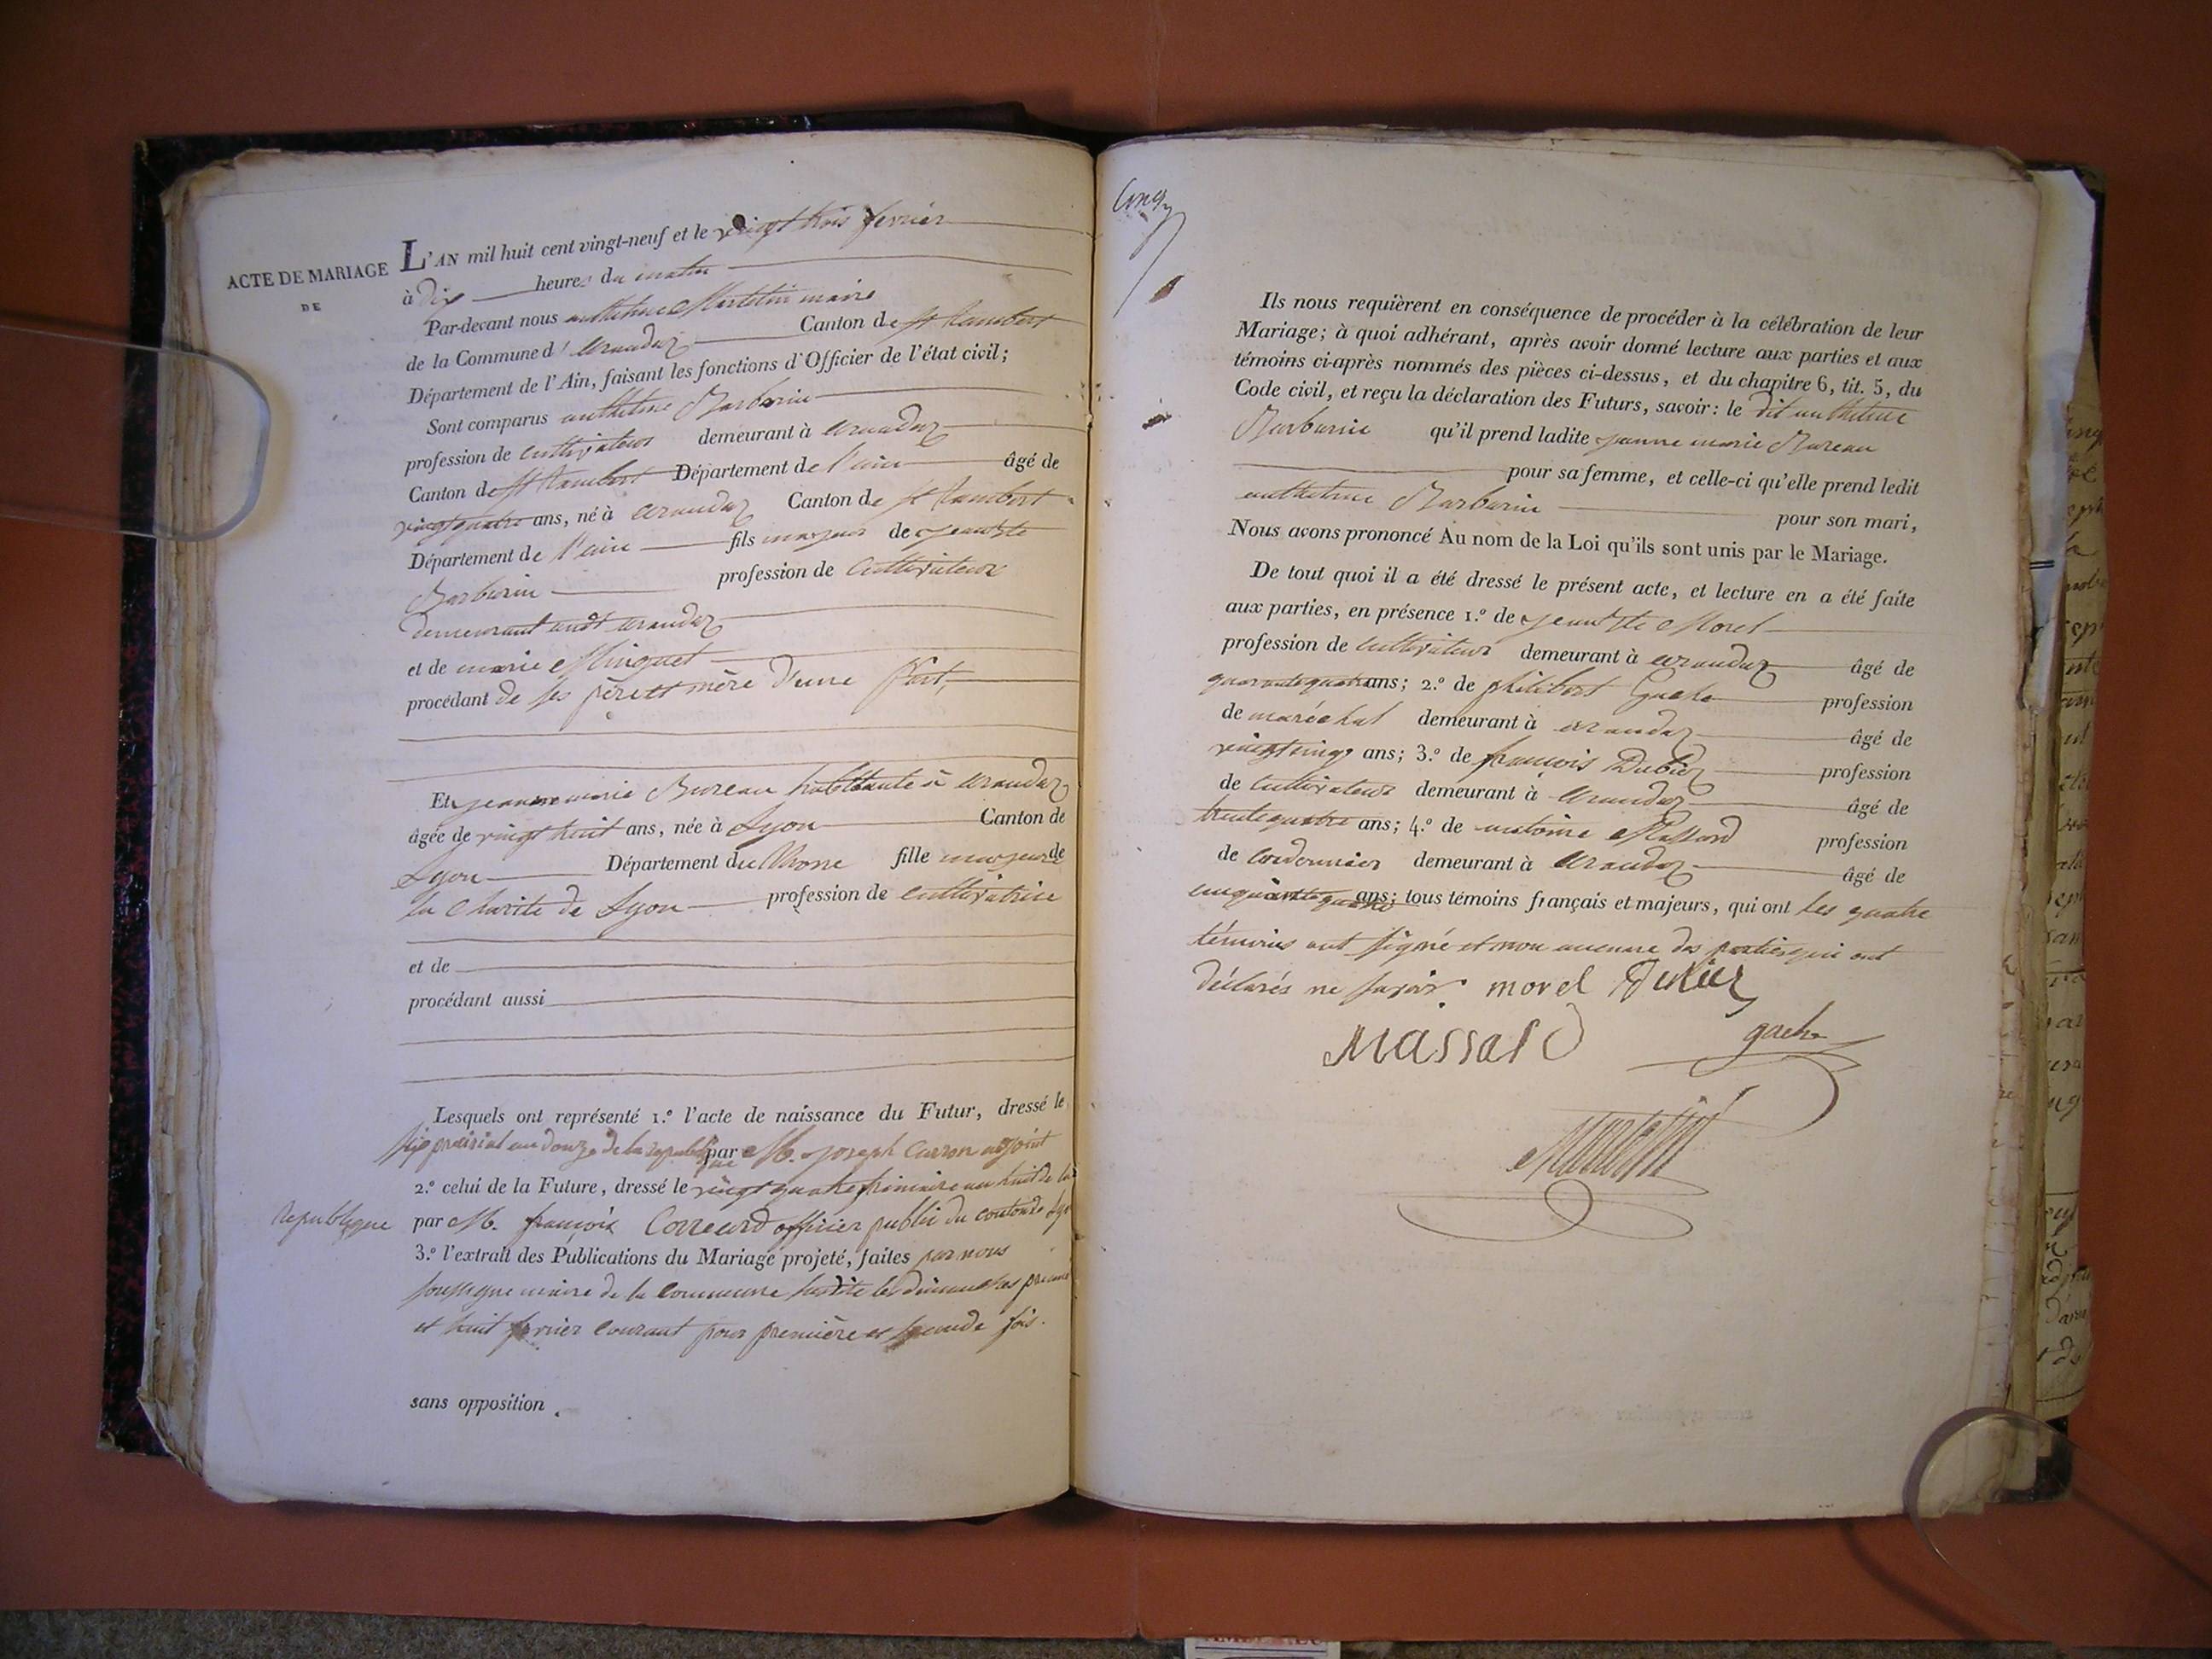 ACTE DE MARIAGE
DE
L'AN mil huit cent vingt-neuf et le vingt trois fevrier
à dix heures du matin
Par-devant nous anthelme Martelin maire
de la Commune d'arandaz Canton de St Rambert
Département de l'Ain, faisant les fonctions d'Officier de l'état civil;
Sont comparus anthelme Barbarin
profession de cultivateur demeurant à arandaz
Canton de St Rambert Département de l'ain âgé de
vingt quatre ans, né à arandaz Canton de St Rambert
Département de l'ain fils majeur de jean Bte
Barbarin profession de cultivateur
demeurant audt arandaz
et de marie Minguet
procédant de ses père et mère d'une part,
Et jeanne marie Bureau habitante à arandaz
âgée de vingt huit ans, née à Lyon Canton de
Lyon Département du Rhone fille majeure de
la Charité de Lyon profession de cultivatrice
et de
procédant aussi
Lesquels ont représenté 1.° l'acte de naissance du Futur, dressé le
six prairial an douze de la republique par M. joseph Carron adjoint
2.° celui de la Future, dressé le vingt quatre frimaire an huit de la
republique par M. françois Correard officier public du canton de Lyon
3.° l'extrait des Publications du Mariage projeté, faites par nous
soussigné maire de la commune susdite les dimanches premier
et huit fevrier courant pour première et seconde fois.
sans opposition.
Cinq
Ils nous requièrent en conséquence de procéder à la célébration de leur
Mariage; à quoi adhérant, après avoir donné lecture aux parties et aux
témoins ci-après nommés des pièces ci-dessus, et du chapitre 6, tit. 5, du
Code civil, et reçu la déclaration des Futurs, savoir: le dit anthelme
Barbarin qu'il prend ladite jeanne marie Bureau
pour sa femme, et celle-ci qu'elle prend ledit
anthelme Barbarin pour son mari,
Nous avons prononcé Au nom de la Loi qu'ils sont unis par le Mariage.
De tout quoi il a été dressé le présent acte, et lecture en a été faite
aux parties, en présence 1.° de jean Bte Morel
profession de cultivateur demeurant à arandaz âgé de
quarante quatre ans; 2.° de philibert Gache profession
de maréchal demeurant à arandaz âgé de
vingt cinq ans; 3.° de françois Dubiez profession
de cultivateur demeurant à arandaz âgé de
trente quatre ans; 4.° de antoine Massard profession
de cordonnier demeurant à arandaz âgé de
cinquante quatre ans; tous témoins français et majeurs, qui ont les quatre
témoins ont signé et non aucune des parties qui ont
déclarés ne savoir. morel Dubiez
Massard gache
Martelin